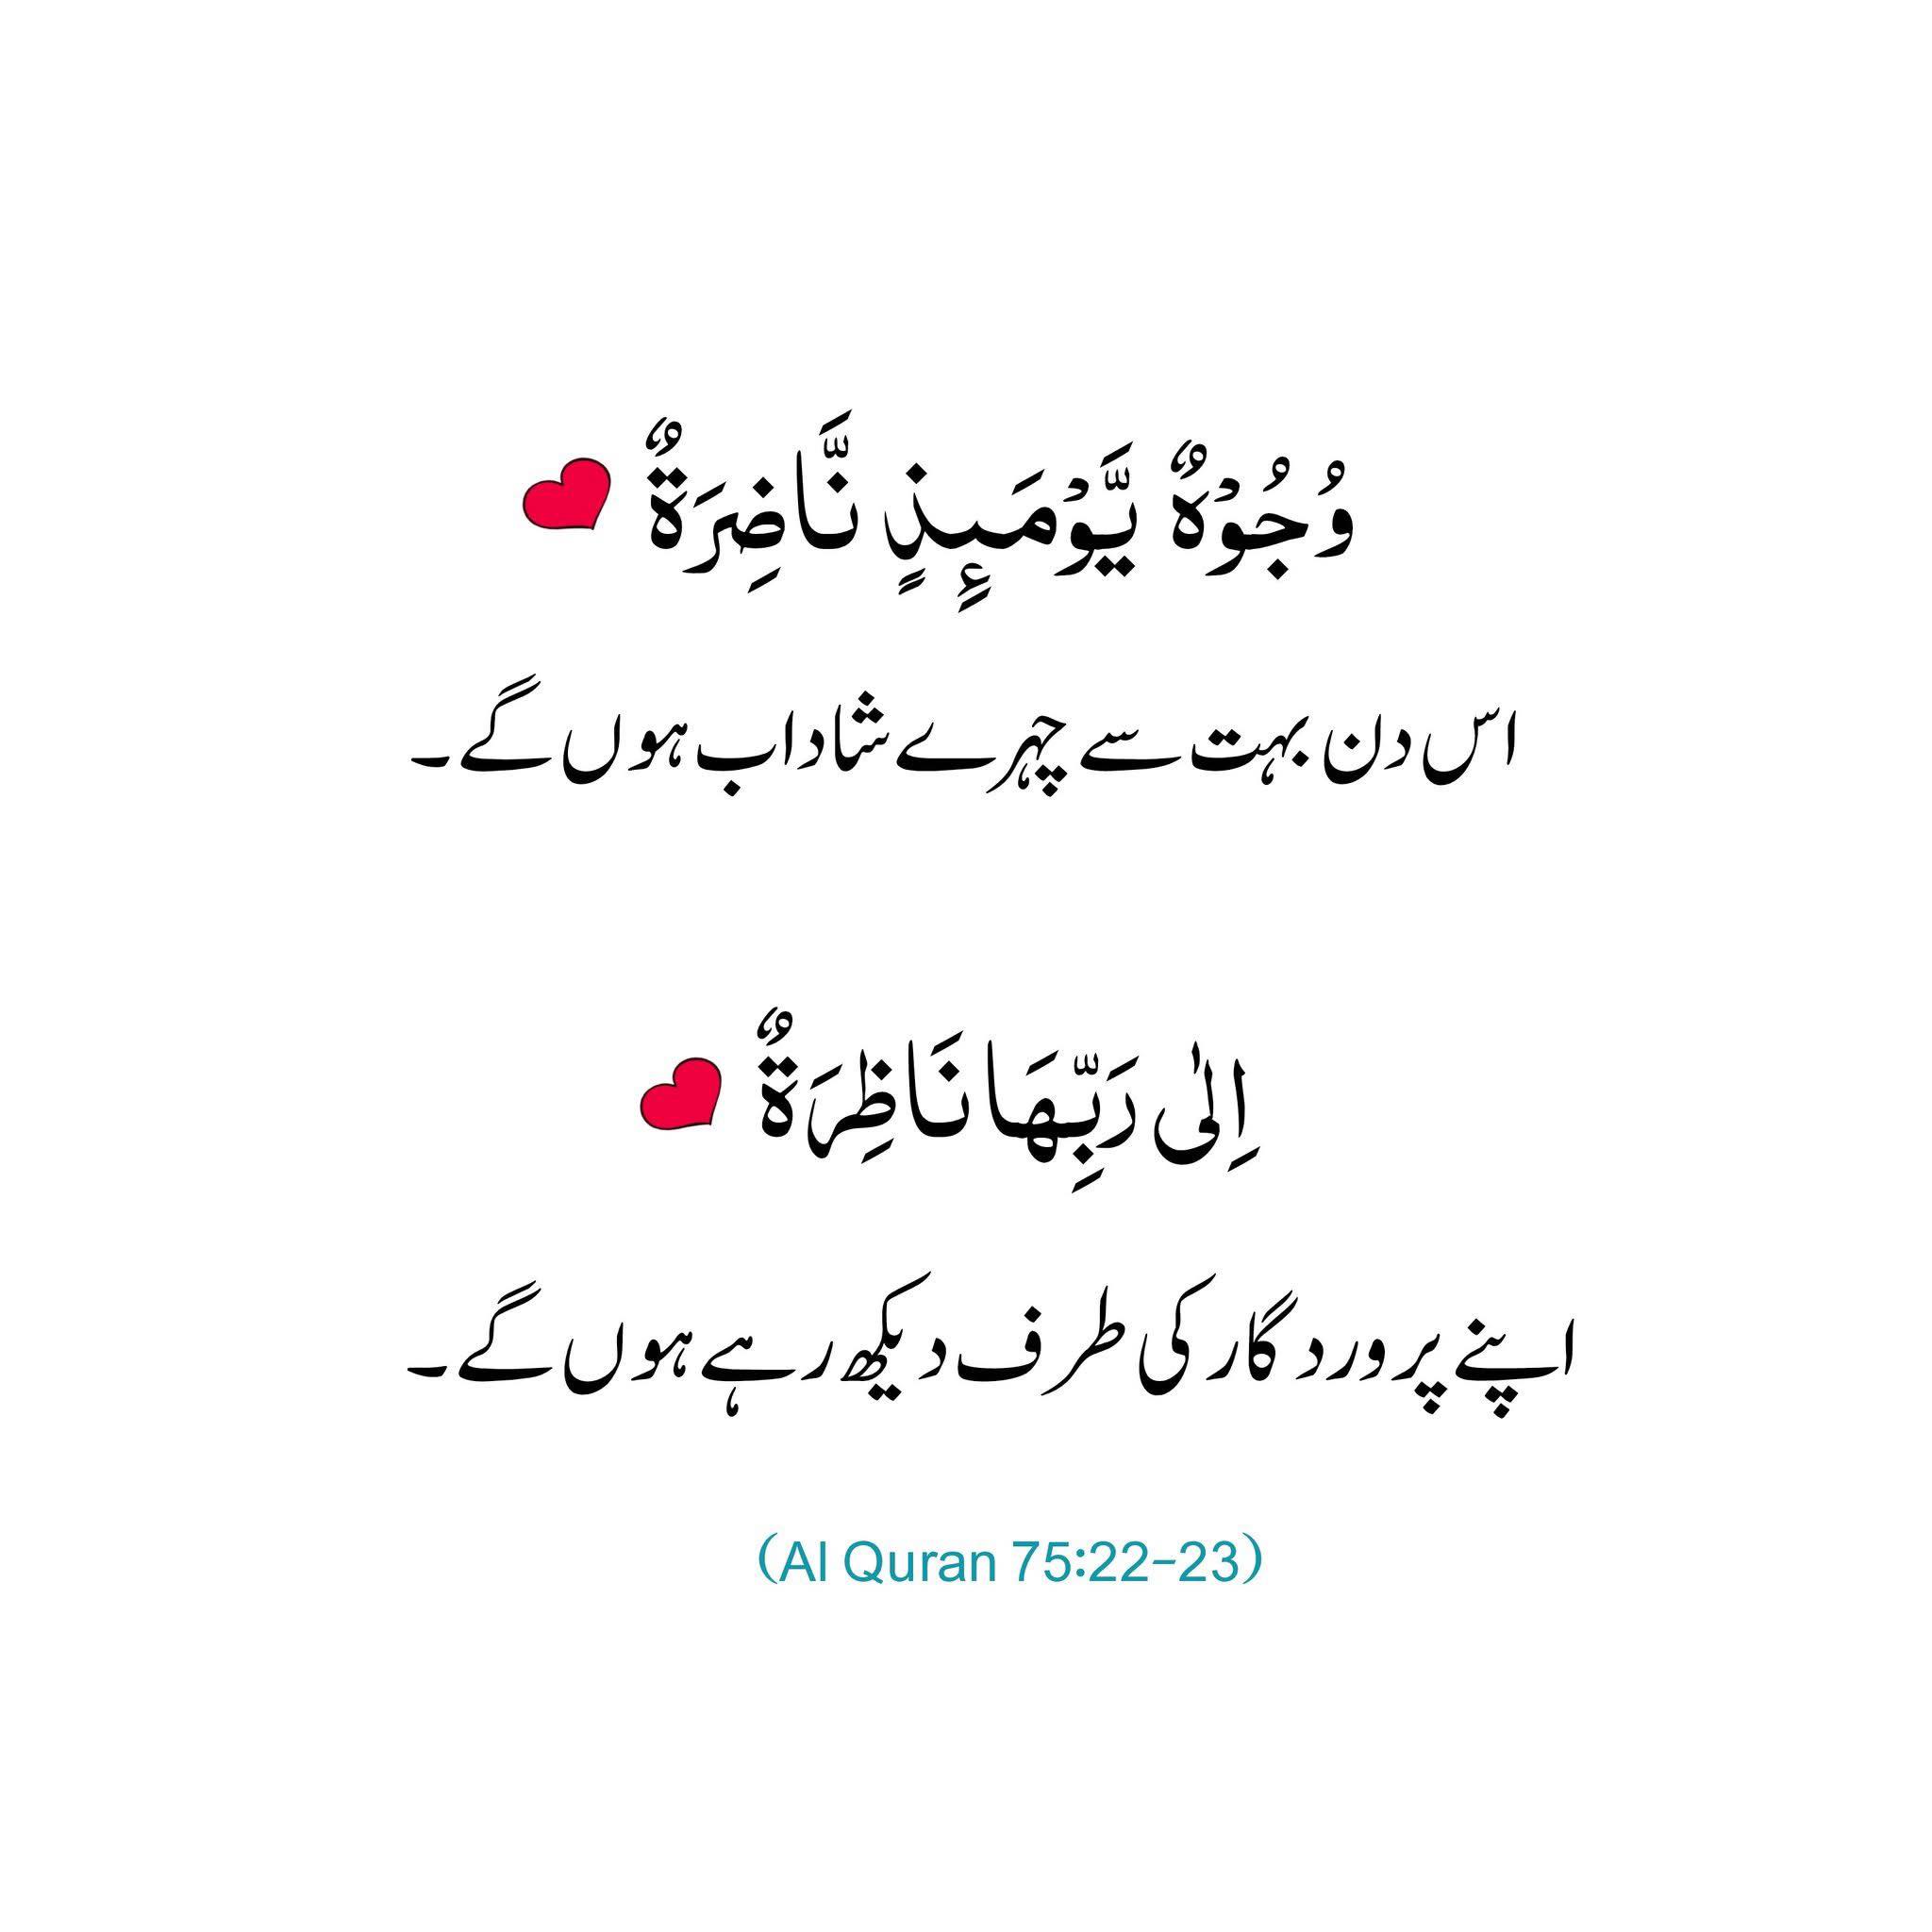 وُجُوْهٌ يَّوْمَىِٕذٍ نَّاضِرَةٌ
اس دن بہت سے چہرے شاداب ہوں گے۔
اِلٰى رَبِّهَا نَاظِرَةٌ
اپنے پروردگار کی طرف دیکھ رہے ہوں گے۔
(Al Quran 75:22-23)